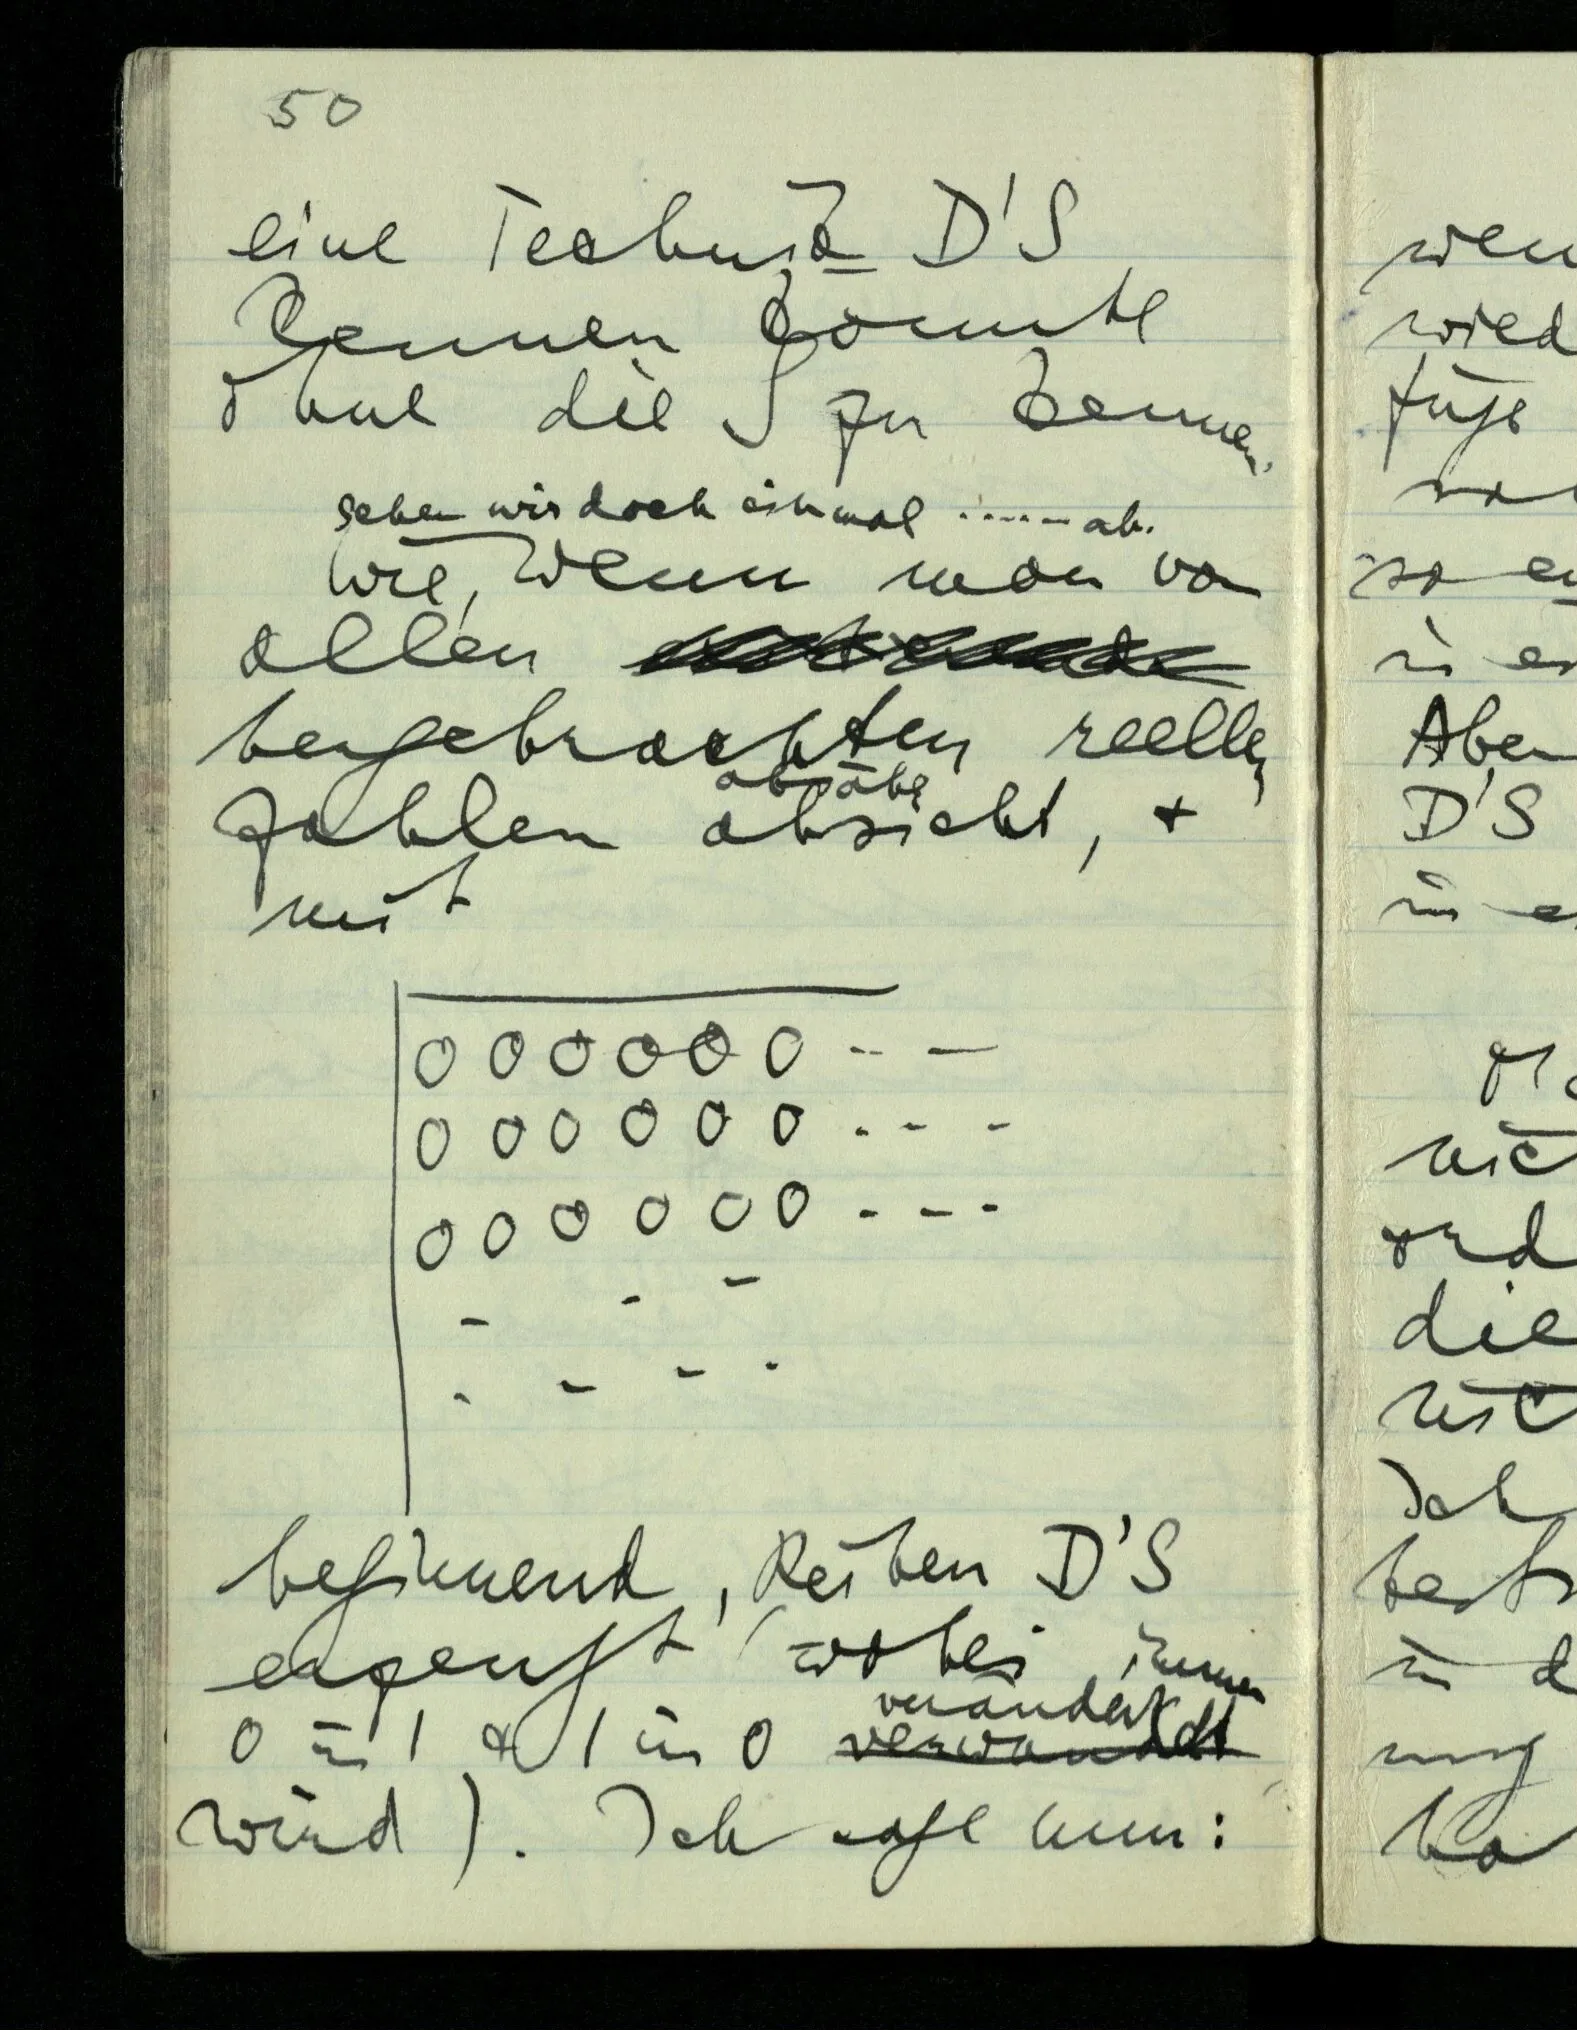 50
eine Technik D'S
kennen könnte
ohne die S zu kennen.
sehen wir doch einmal ...... ab.
Wie, wenn man von
allen
hergebrachten reellen
absähe
Zahlen absieht, +
mit
0 0 0 0 0 0 - - —
0 0 0 0 0 0 . - -
0 0 0 0 0 0 - - -
- - -
. - - .
beginnend, Reihen D'S
erzeugt (wobei immer
verändert
0 in 1 & 1 in 0 verwandelt
wird). Ich sage nun:
wen
wied
füge
so
in
Aben
D'S
in
nic
ord
die
nic
Ich
in d